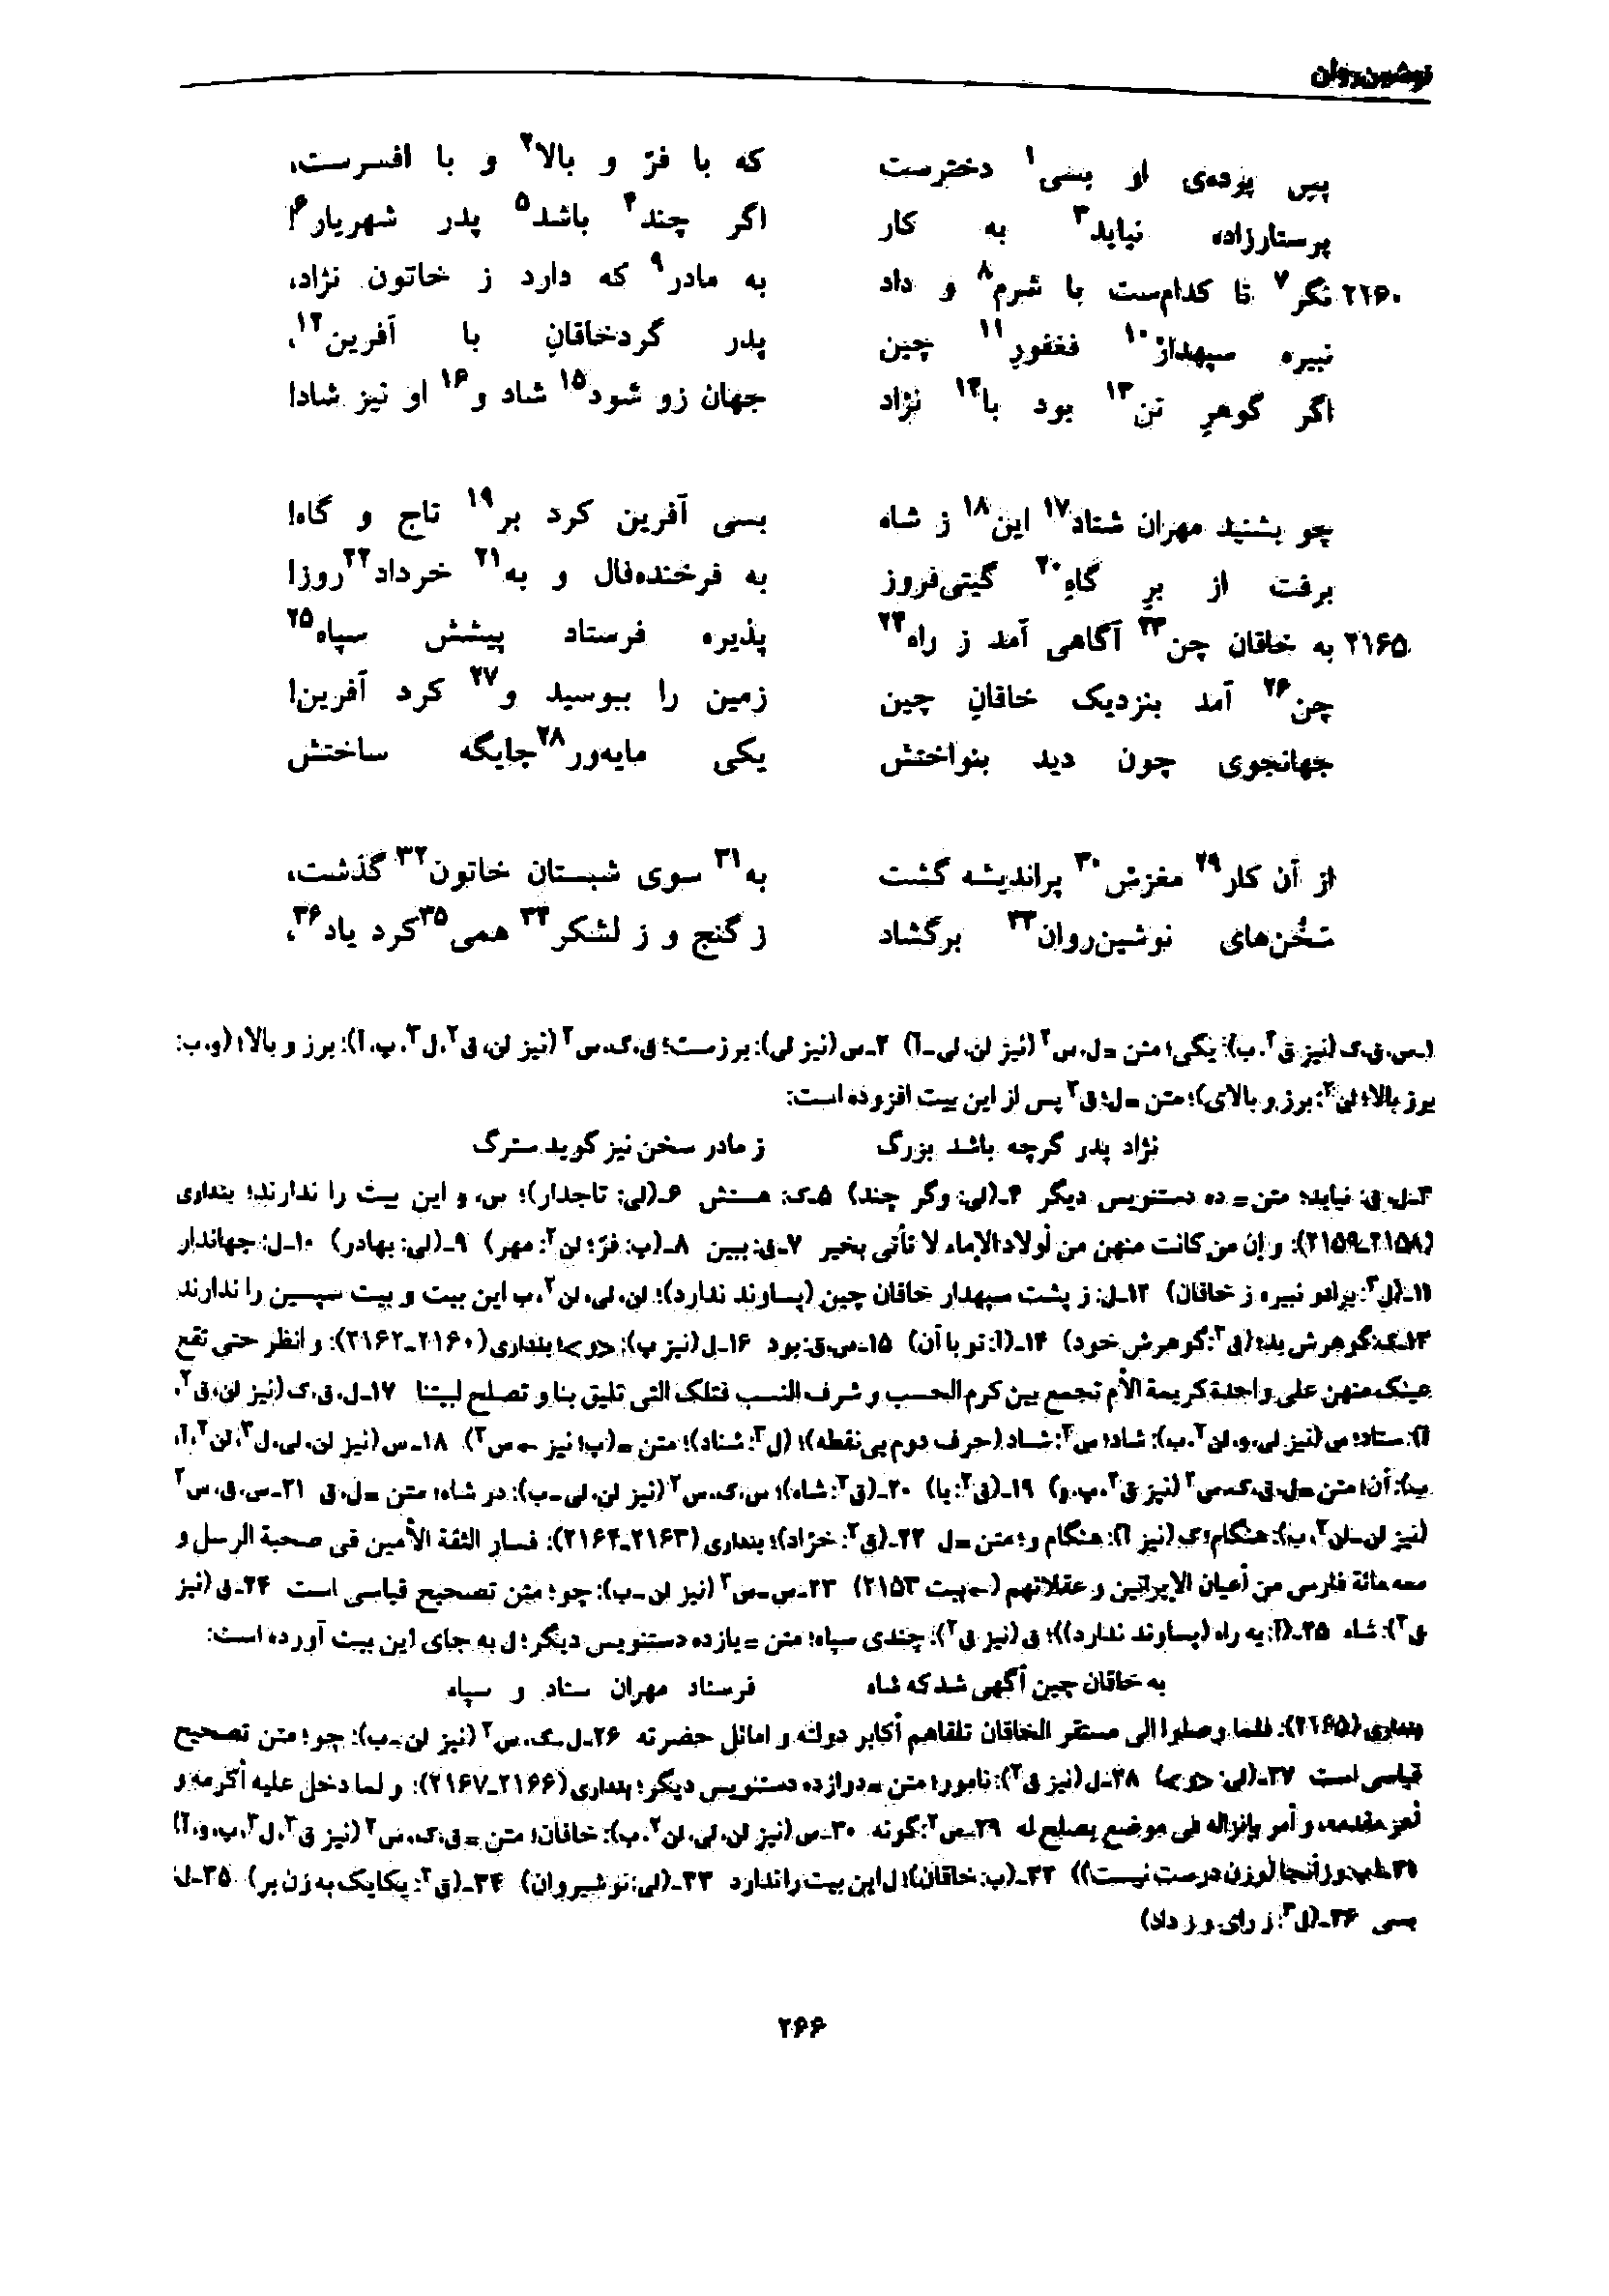 نوشین‌روان
پس پرده‌ی او بسی۱ دخترست که با فرّ و بالا۲ و با افسرست،
پرستارزاده نیاید۳ به کار اگر چند۴ باشد۵ پدر شهریار۶!
۲۱۶۰ نگر۷ تا کدام‌ست با شرم۸ و داد به مادر۹ که دارد ز خاتون نژاد،
نبیره سپهدار۱۰ فغفورِ۱۱ چین پدر گردخاقانِ با آفرین۱۲،
اگر گوهرِ تن۱۳ بود با۱۴ نژاد جهان زو شود۱۵ شاد و۱۶ او نیز شاد!
چو بشنید مهران ستاد۱۷ این۱۸ ز شاه بسی آفرین کرد بر۱۹ تاج و گاه!
برفت از برِ گاهِ۲۰ گیتی‌فروز به فرخنده‌فال و به۲۱ خرداد۲۲روز!
۲۱۶۵ به خاقان چن۲۳ آگاهی آمد ز راه۲۴ پذیره فرستاد پیشش سپاه۲۵
چن۲۶ آمد بنزدیک خاقانِ چین زمین را ببوسید و۲۷ کرد آفرین!
جهانجوی چون دید بنواختش یکی مایه‌ور۲۸جایگه ساختش
از آن کار۲۹ مغزش۳۰ پراندیشه گشت به۳۱ سوی شبستان خاتون۳۲ گذشت،
سَخُن‌های نوشین‌روان۳۳ برگشاد ز گنج و ز لشکر۳۴ همی۳۵کرد یاد۳۶،
۱ـ س، ق، ک (نیز ق۲، ب): یکی؛ متن = ل، س۲ (نیز لن، لی ـ آ) ۲ـ س (نیز لی): برزست؛ ق، ک، س۲ (نیز لن، ق۲، ل۳، پ، آ): برز و بالا؛ (و، ب:
برز بالا؛ لن۲: برز و بالای)؛ متن = ل؛ ق۲ پس از این بیت افزوده است:
نژاد پدر گرچه باشد بزرگ ز مادر سخن نیز گوید سترگ
۳ـ ل، ق: نیابد؛ متن = ده دستنویس دیگر ۴ـ (لی: وگر چند) ۵ـ ک: هستش ۶ـ (لی: تاجدار)؛ س، و این بیت را ندارند؛ بنداری
(۲۱۵۸ـ۲۱۵۹): و إن من کانت منهن من أولاد الإماء لا تأتی بخیر ۷ـ ق: ببین ۸ـ (پ: فرّ؛ لن۲: مهر) ۹ـ (لی: بهادر) ۱۰ـ ل: جهاندار
۱۱ـ (ل۳: برادو نبیره ز خاقان) ۱۲ـ ل: ز پشت سپهدار خاقان چین (پساوند ندارد)؛ لن، لی، لن۲، ب این بیت و بیت سپسین را ندارند
۱۳ـ ک: گوهرش بد؛ (ق۲: گوهرش خود) ۱۴ـ (آ: تو با آن) ۱۵ـ س، ق: بود ۱۶ـ ل (نیز پ): <و>؛ بنداری (۲۱۶۰ـ۲۱۶۲): و انظر حتی تقع
عینک منهن علی واحدة کریمة الأم تجمع بین کرم الحسب و شرف النسب فتلک التی تلیق بنا و تصلح لبیتنا ۱۷ـ ل، ق، ک (نیز لن، ق۲،
آ): ستاد؛ س (نیز لی، و، لن۲، ب): شاد؛ س۲: شاد (حرف دوم بی‌نقطه)؛ (ل۳: شناد)؛ متن = (پ؛ نیز ← س۲) ۱۸ـ س (نیز لن، لی، ل۳، لن۲، آ،
ب): آن؛ متن = ل، ق، ک، س۲ (نیز ق۲، پ، و) ۱۹ـ (ق۲: با) ۲۰ـ (ق۲: شاه)؛ س، ک، س۲ (نیز لن، لی ـ ب): در شاه؛ متن = ل، ق ۲۱ـ س، ق، س۲
(نیز لن ـ لن۲، ب): هنگام؛ ک (نیز آ): هنگام و؛ متن = ل ۲۲ـ (ق۲: خرّاد)؛ بنداری (۲۱۶۳ـ۲۱۶۴): فسار الثقة الأمین فی صحبة الرسل و
معه مائة فارس من أعیان الإیرانین و عقلائهم (← بیت ۲۱۵۳) ۲۳ـ س ـ س۲ (نیز لن ـ ب): چو؛ متن تصحیح قیاسی است ۲۴ـ ق (نیز
ق۲): شاه ۲۵ـ (آ: به راه (پساوند ندارد))؛ ق (نیز ق۲): چندی سپاه؛ متن = یازده دستنویس دیگر؛ ل به جای این بیت آورده است:
به خاقان چین آگهی شد که شاه فرستاد مهران ستاد و سپاه
بنداری (۲۱۶۵): فلما وصلوا الی مستقر الخاقان تلقاهم أکابر دولته و اماثل حضرته ۲۶ـ ل، ک، س۲ (نیز لن ـ ب): چو؛ متن تصحیح
قیاسی است ۲۷ـ (لی: <و>) ۲۸ـ ل (نیز ق۲): نامور؛ متن = دوازده دستنویس دیگر؛ بنداری (۲۱۶۶ـ۲۱۶۷): و لما دخل علیه أکرمه و
مقدمه، و أمر بإنزاله فی موضع یصلح له ۲۹ـ س۲: گونه ۳۰ـ س (نیز لن، لی، لن۲، ب): خاقان؛ متن = ق، ک، س۲ (نیز ق۲، ل۳، پ، و، آ)
۳۱ـ وز آنجا (وزن درست نیست)) ۳۲ـ (پ: خاقان)؛ ل این بیت را ندارد ۳۳ـ (لی: نوشیروان) ۳۴ـ (ق۲: یکایک به زن بر) ۳۵ـ ل:
بسی ۳۶ـ (ل۳: ز رای و ز داد)
۲۶۶